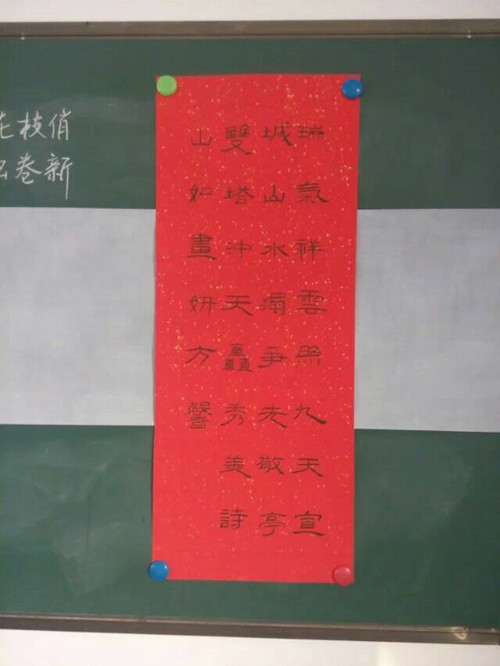 瑞氣祥雲照九天宣
城山水爭先敬亭
雙塔沖天矗秀美詩
山如畫妍方馨
花枝俏
卷新